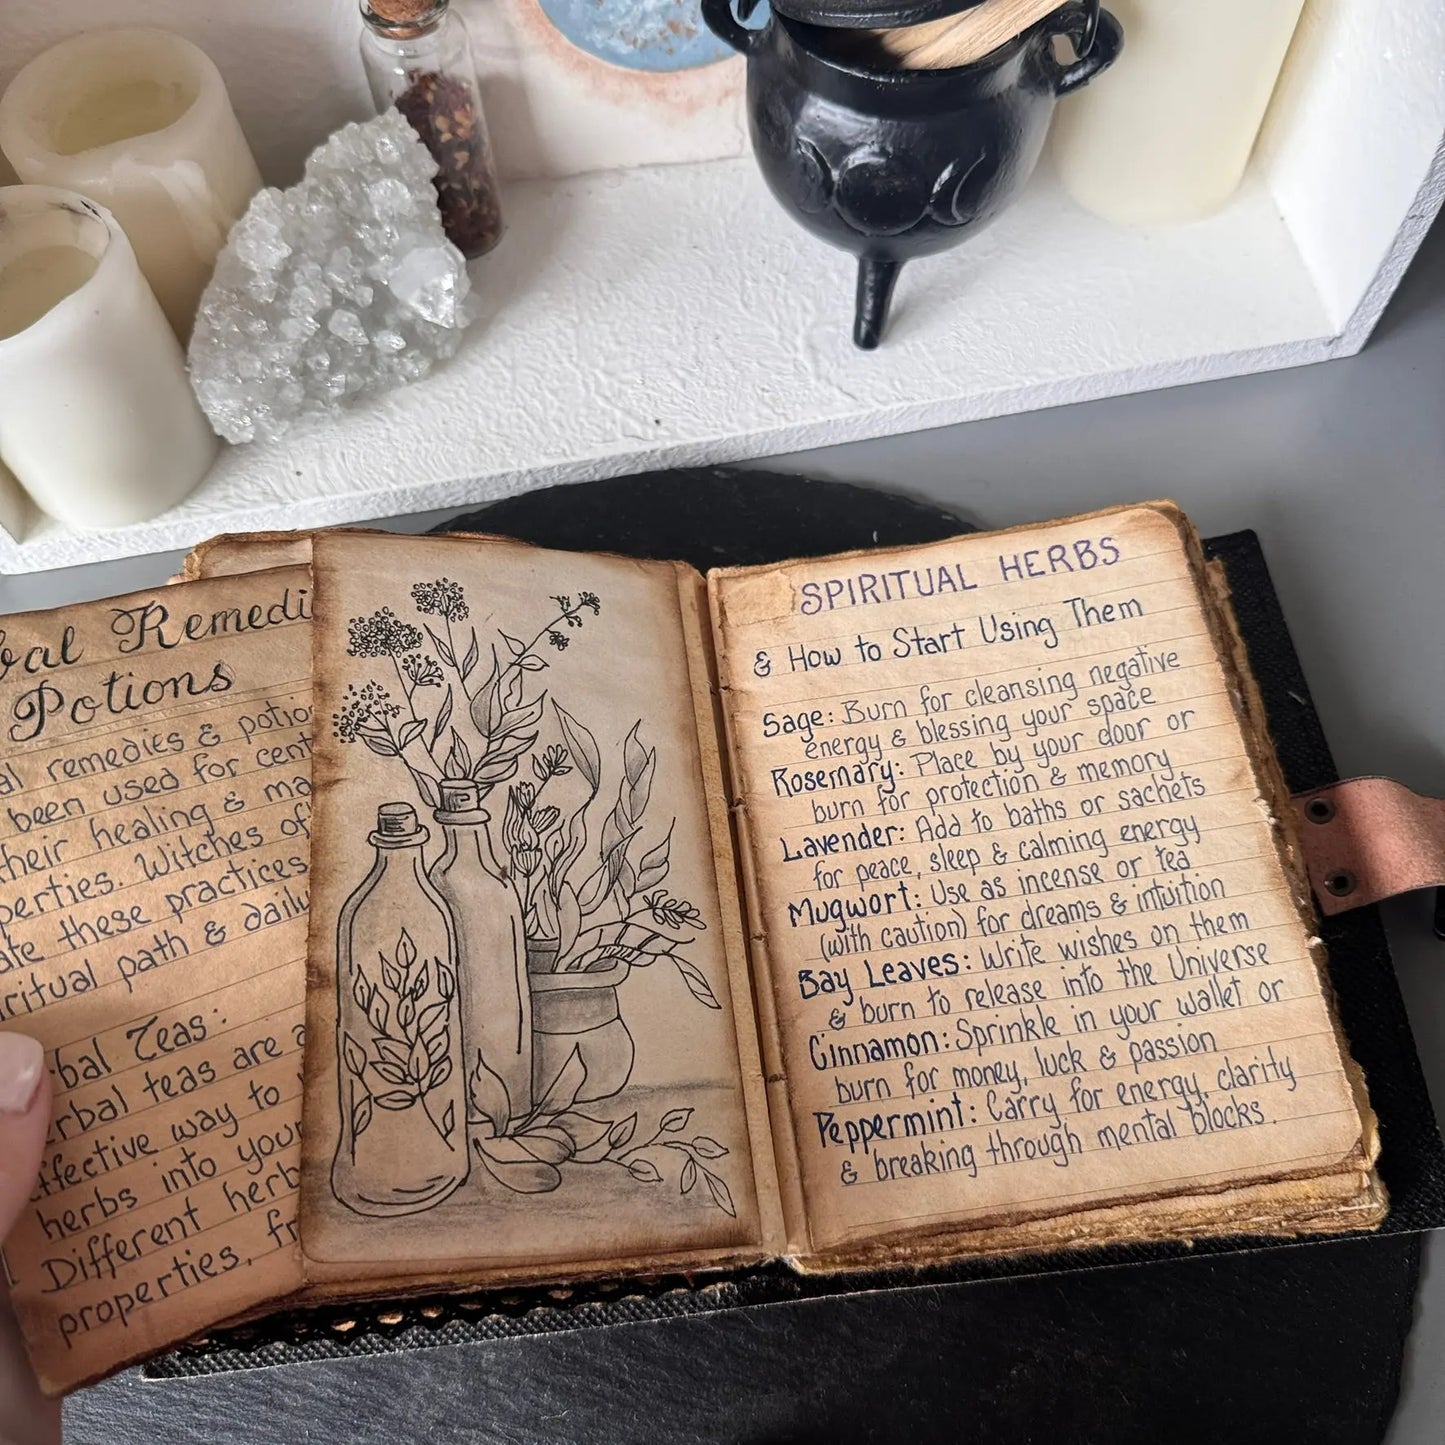 Remedi
Potions
remedies & potio
been used for cent
their healing & ma
Witches of
these practices
path & daily
Teas:
teas are a
way to
herbs into your
Different herb
properties, fr
SPIRITUAL HERBS
& How to Start Using Them
Sage: Burn for cleansing negative
energy & blessing your space
Rosemary: Place by your door or
burn for protection & memory
Lavender: Add to baths or sachets
for peace, sleep & calming energy
Mugwort: Use as incense or tea
(with caution) for dreams & intuition
Bay Leaves: Write wishes on them
& burn to release into the Universe
Cinnamon: Sprinkle in your wallet or
burn for money, luck & passion
Peppermint: Carry for energy, clarity
& breaking through mental blocks.